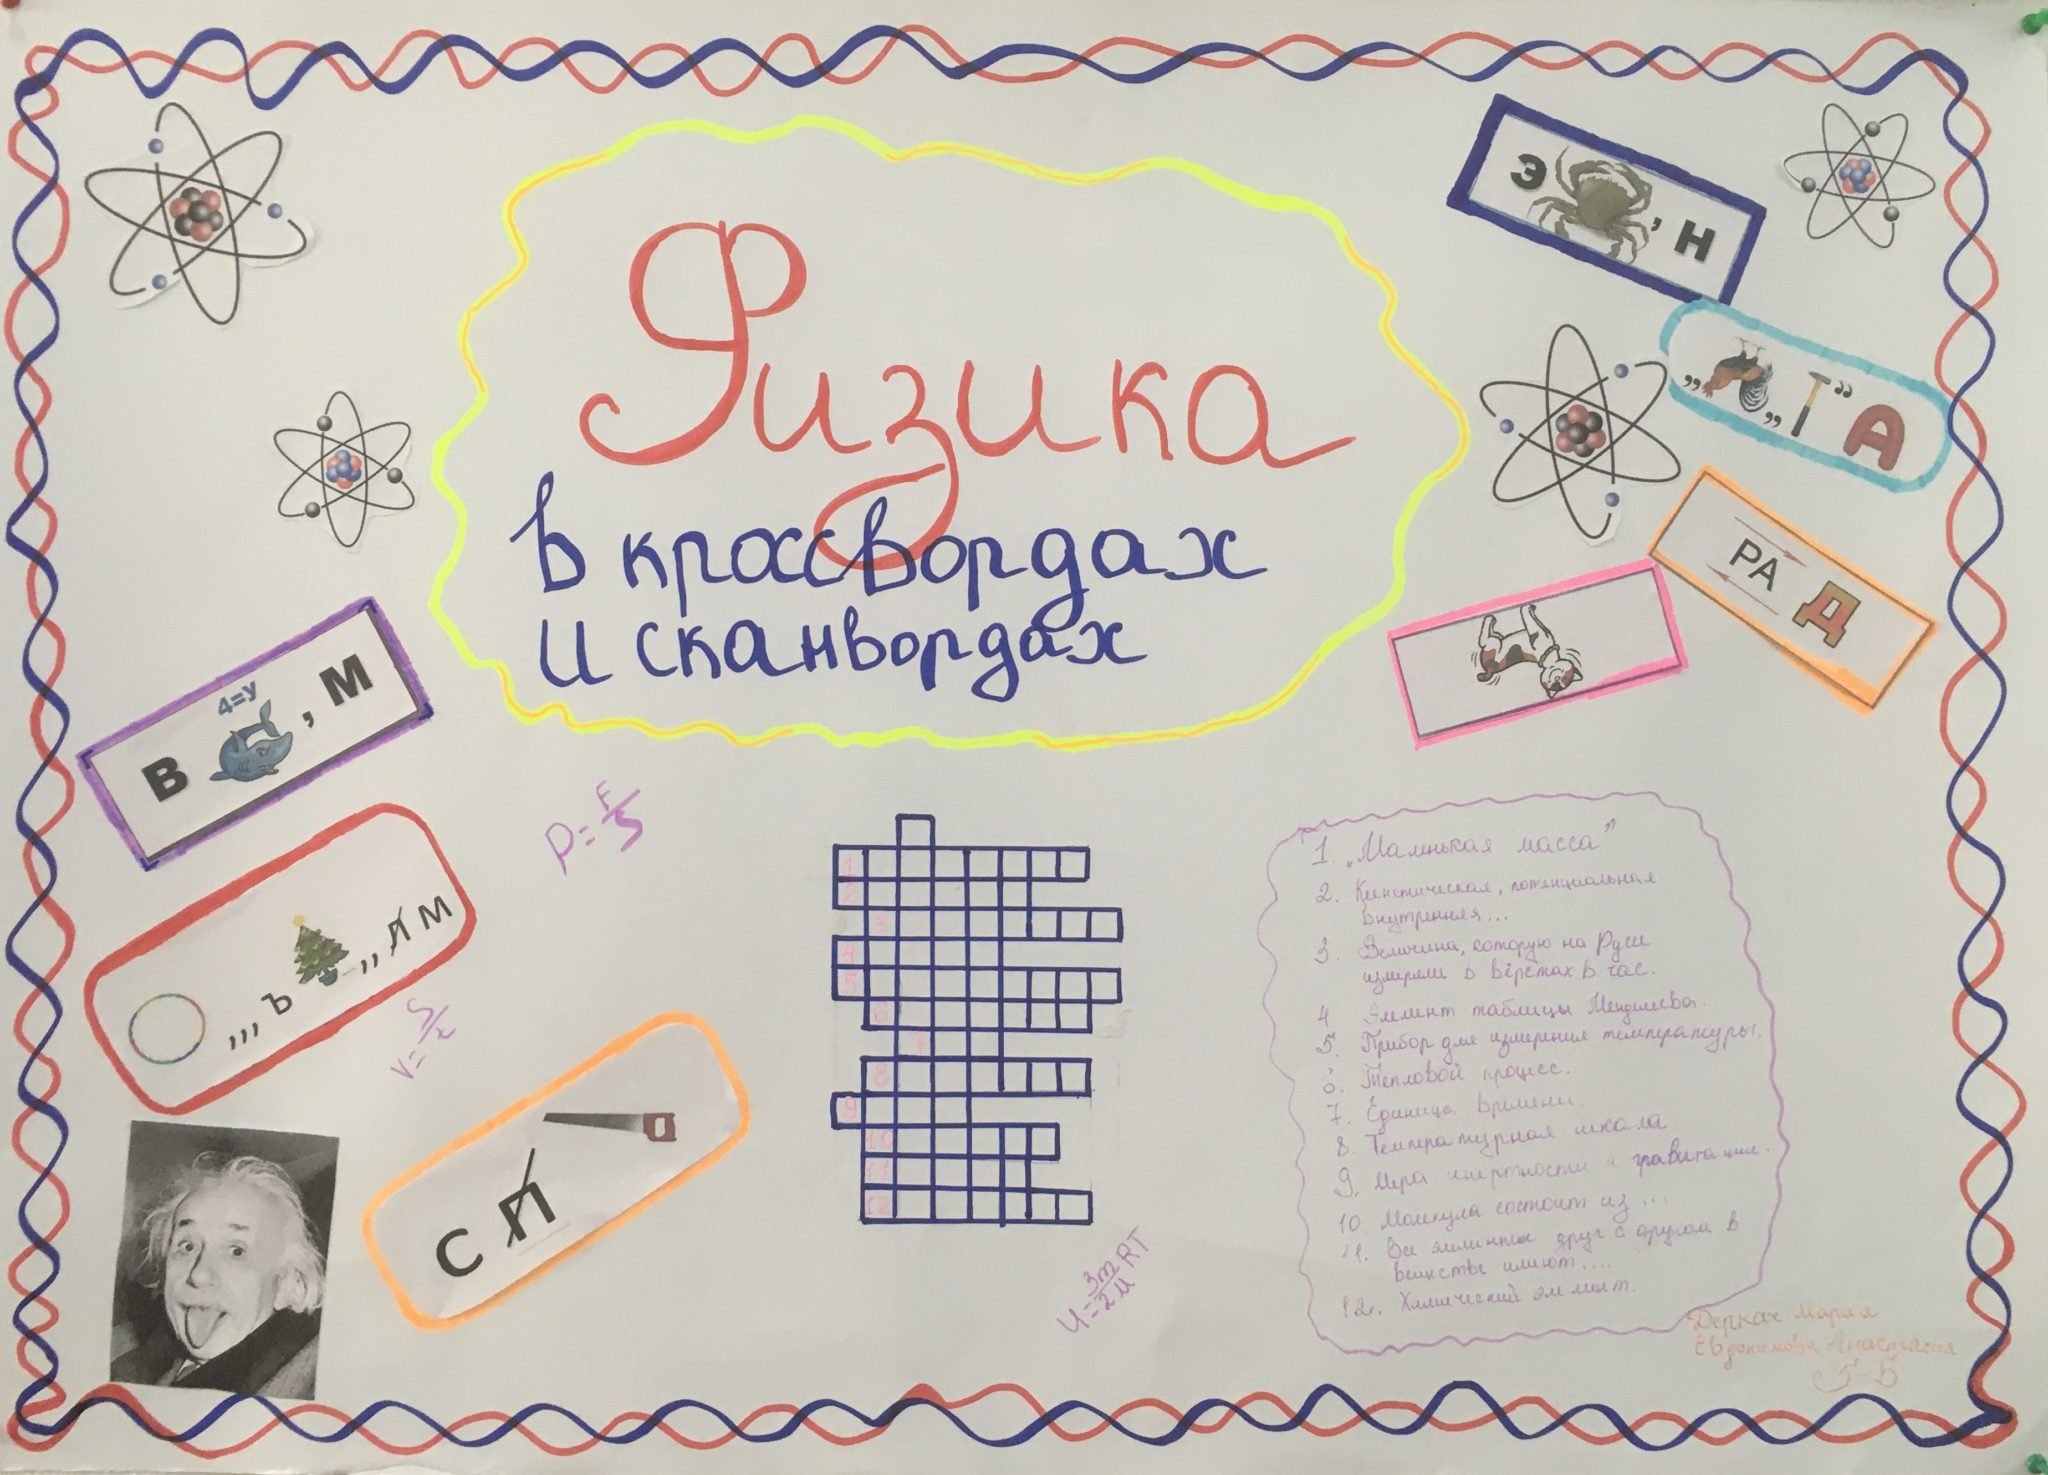 Физика
в кросвордах
и сканвордах
Э , Н
„ „ “ А
РА Д
В 4=У , М
,,, Ъ ,, Л М
С П
P=F/S
V=S/t
U=3m/2μ RT
1
2
3
4
5
6
7
8
9
10
11
12
1. „Маленькая масса"
2. Кинетическая, потенциальная
внутренняя...
3. Величина, которую на Руси
измеряли в вёрстах в час.
4. Элемент таблицы Менделеева.
5. Прибор для измерения температуры.
6. Тепловой процесс.
7. Единица времени.
8. Температурная шкала
9. Мера инертности и гравитации.
10 Молекула состоит из ...
11. Все элементы друг с другом в
веществе имеют....
12. Химический элемент.
Деркач Мария
Евдокимова Анастасия
5-Б